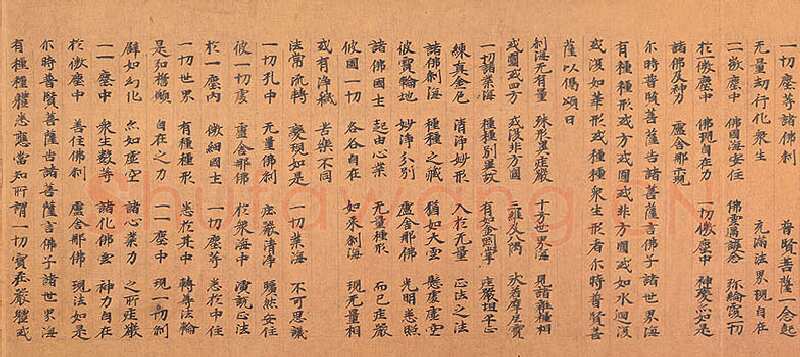 一切塵等諸佛刹 普賢菩薩一念起
无量劫行化衆生 充滿法界現自在
一一微塵中 佛國海安住 佛雲遍護念 弥綸覆一切
於一微塵中 佛現自在力 一切微塵中 神變亦如是
諸佛及神力 盧舍那示現
尒時普賢菩薩告諸菩薩言佛子諸世界海
有種種形或方或圓或非方圓或如水洄澓
或復如華形或種種衆生形者尒時普賢菩
薩以偈頌曰
刹海无有量 殊形異莊嚴 十方世界海 見諸種種相
或圓或四方 或復非方圓 三維及八隅 狀若摩尼寶
一切諸業海 種種別異故 有如金剛掌 莊嚴坦平正
練真金色 清淨妙形 入於无量 正法之法
諸佛刹海 種種之藏 猶如大雲 懸處虛空
彼寶輪地 妙淨分別 盧舍那佛 光明悉照
諸佛國土 起由心業 无量種形 而已莊嚴
彼國一切 各各自在 如來刹海 現无量相
或有淨穢 苦樂不同
法常流轉 變現如是 一切業海 不可思議
一切孔中 无量佛刹 莊嚴清淨 曠然安住
彼一切處 盧舍那佛 於衆海中 演說正法
於一塵内 微細國土 一切塵等 悉於中住
一切世界 有種種形 悉於其中 轉尊法輪
願 自在之力 一一塵中 現一切刹
譬如幻化 亦如虛空 諸心業力 之所莊嚴
一一塵中 衆生數等 諸化佛雲 神力自在
於微塵中 善住佛刹 盧舍那佛 現法如是
尒時普賢菩薩告諸菩薩言佛子諸世界海
有種種體悉應當知所謂一切寶莊嚴體或